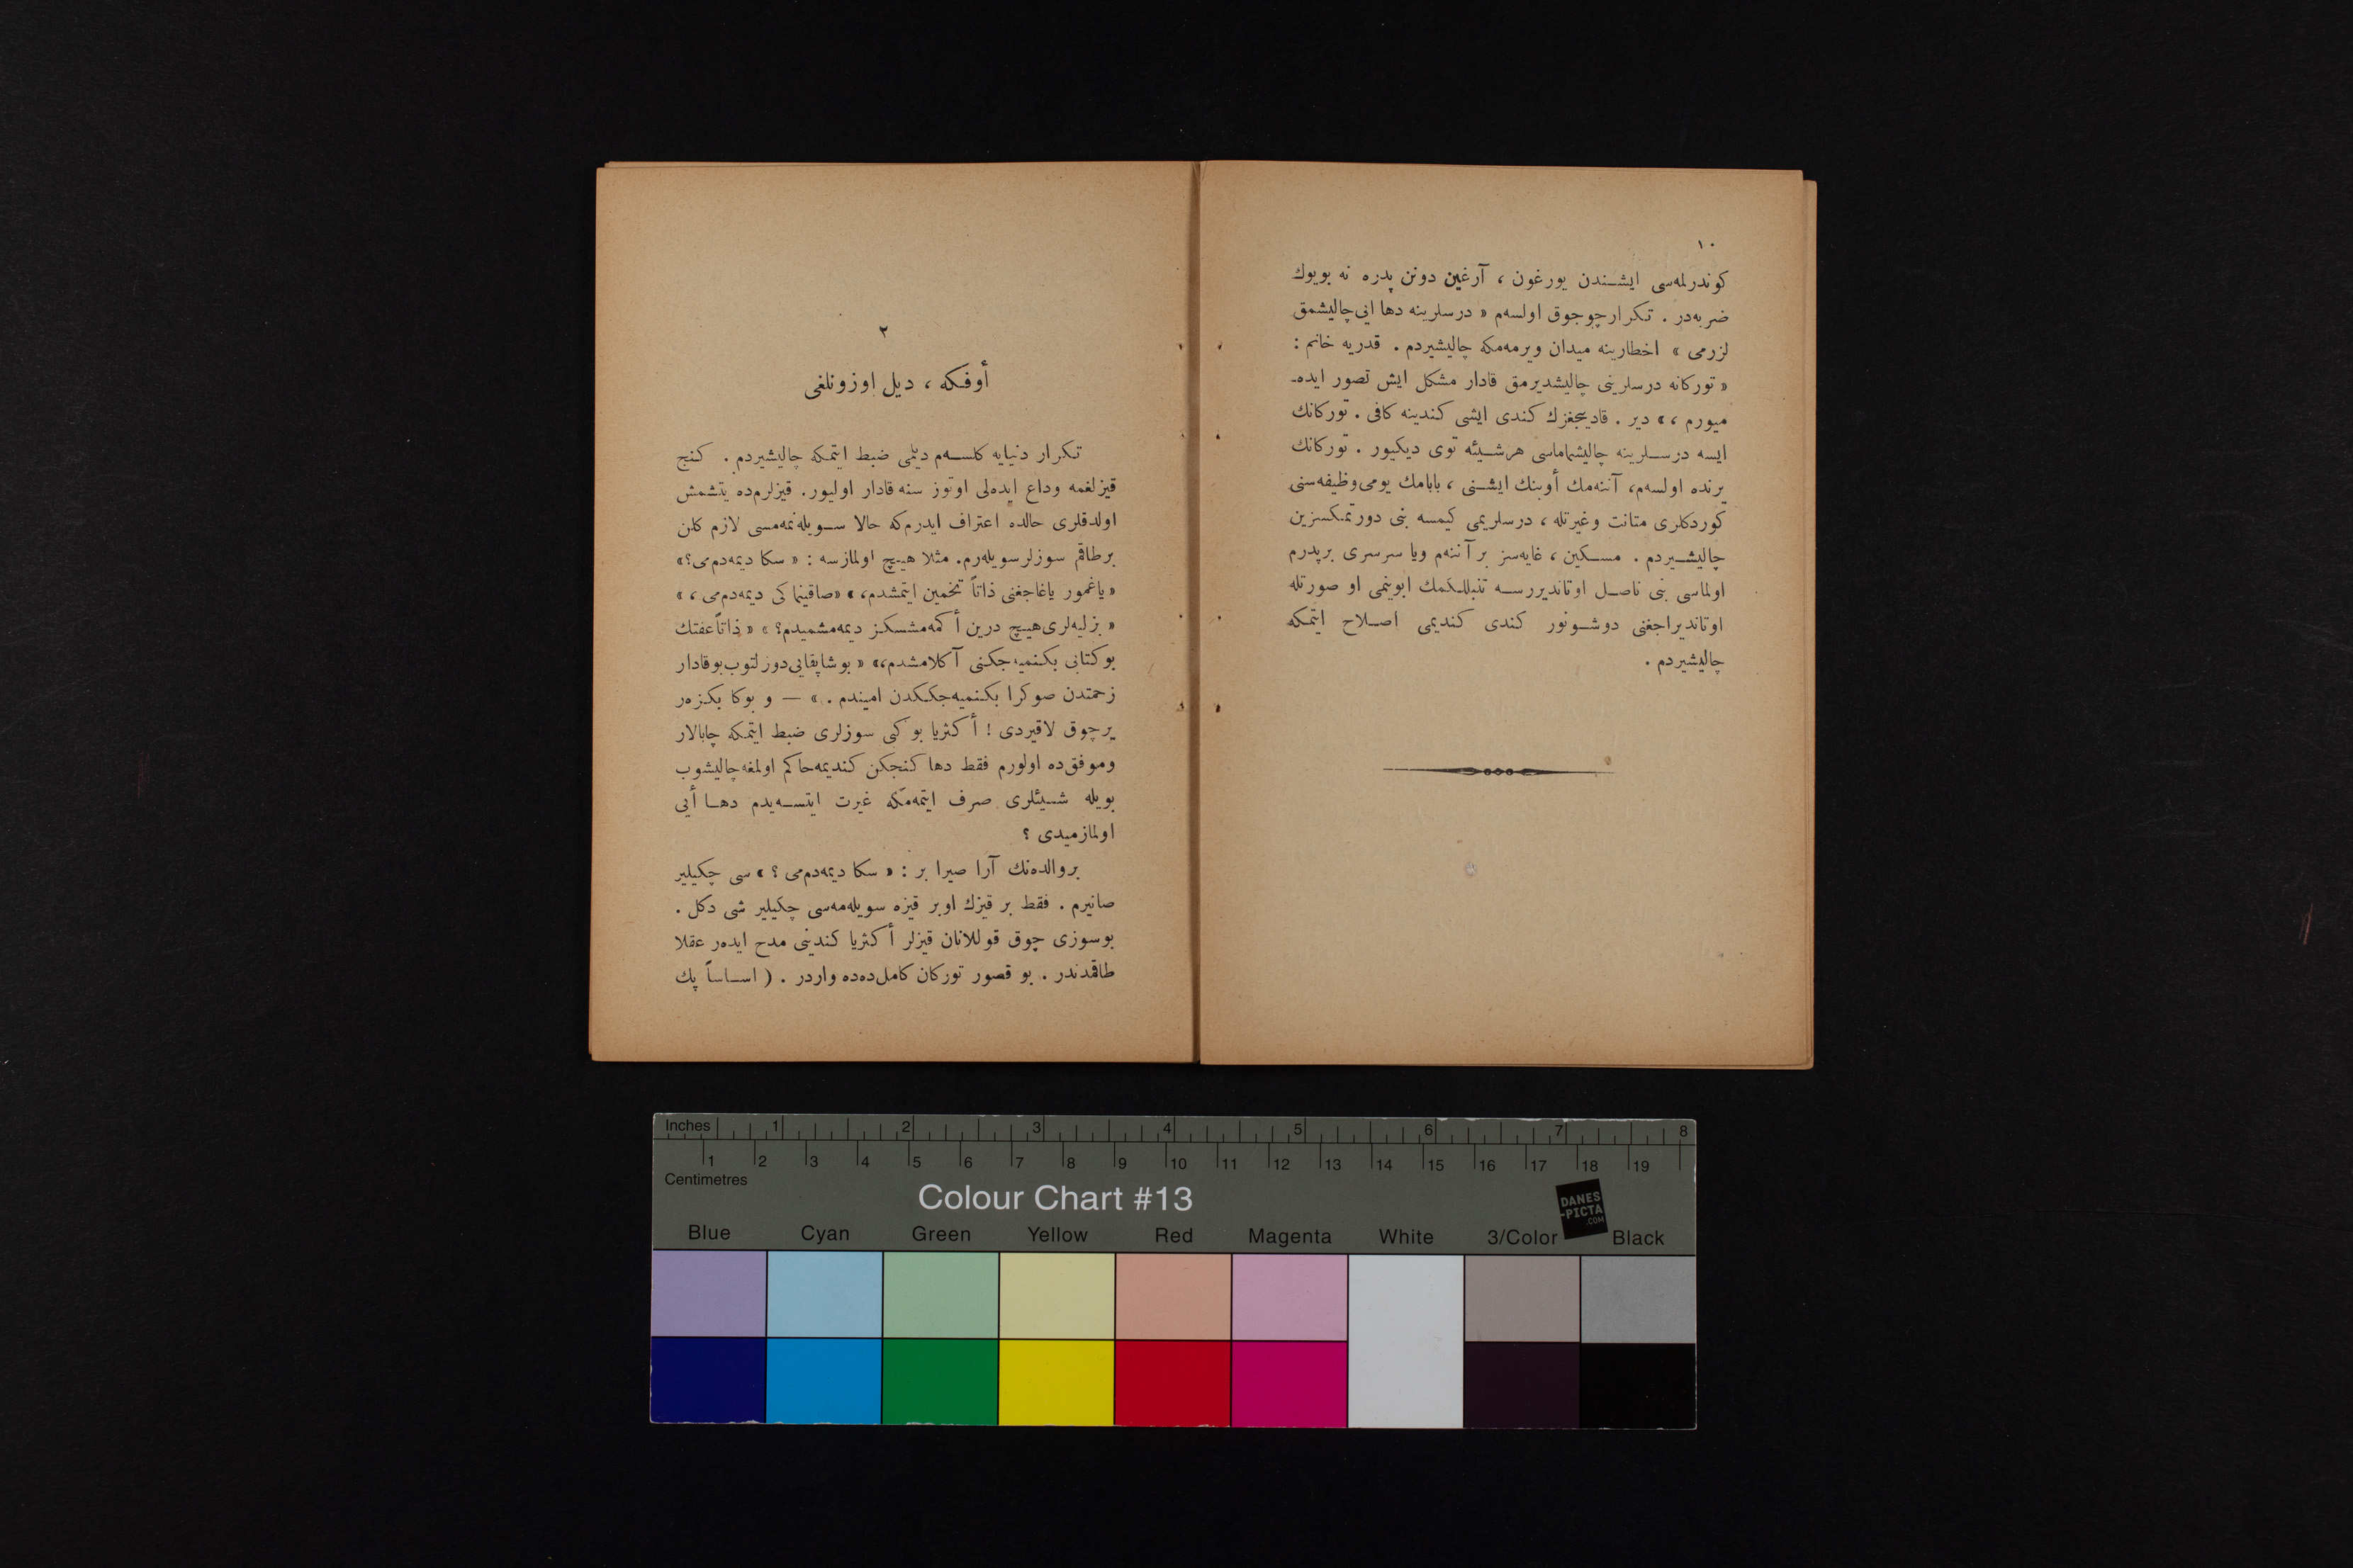 ١٠
كوندرلمه‌سی ایشندن یورغون ، آرغین دونن پدره نه بویوك
ضربه‌در . تكرار چوجوق اولسه‌م « درسلرینه دها ایی چالیشمق
لزرمی » اخطارینه میدان ویرمه‌مكه چالیشیردم . قدریه خانم :
« توركانه درسلرینی چالیشدیرمق قادار مشكل ایش تصور ایده‌ـ
میورم ، » دیر . قادینجغزك كندی ایشی كندینه كافی . توركانك
ایسه درسلرینه چالیشماماسی هرشیئه توی دیكیور . توركانك
یرنده اولسه‌م، آننه‌مك أوینك ایشنی ، بابامك یومی وظیفه‌سنی
كوردكلری متانت وغیرتله ، درسلریمی كیمسه بنی دورتمكسزین
چالیشیردم . مسكین ، غایه‌سز بر آننه‌م ویا سرسری برپدرم
اولماسی بنی ناصل اوتاندیررسه تنبللكمك ابوینمی او صورتله
اوتاندیراجغنی دوشونور كندی كندیمی اصلاح ایتمكه
چالیشیردم .
٢
أوفكه ، دیل اوزونلغی
تكرار دنیایه كلسه‌م دیلمی ضبط ایتمكه چالیشیردم . كنج
قیزلغمه وداع ایده‌لی اوتوز سنه قادار اولیور. قیزلرم‌ده یتشمش
اولدقلری حالده اعتراف ایدرم‌كه حالا سویله‌نمه‌مسی لازم كلن
برطاقم سوزلر سویله‌رم. مثلا هیچ اولمازسه : « سكا دیمه‌دم‌می؟»
« یاغمور یاغاجغنی ذاتاً تخمین ایتمشدم، » «صاقینما كی دیمه‌دم‌می ، »
« بزلیه‌لری هیچ درین أكمه‌مشسكز دیمه‌مشمیدم؟ » « ذاتاً عفتك
بو كتابی بكنمیه‌جكنی آكلامشدم،» « بو شاپقایی دوزلتوب بوقادار
زحمتدن صوكرا بكنمیه‌جككدن امیندم . » — و بوكا بكزه‌ر
برچوق لاقیردی ! أكثریا بو كبی سوزلری ضبط ایتمكه چابالار
وموفق‌ده اولورم فقط دها كنجكن كندیمه حاكم اولمغه چالیشوب
بویله شیئلری صرف ایتمه‌مكه غیرت ایتسه‌یدم دها أیی
اولمازمیدی ؟
بروالده‌نك آرا صیرا بر : « سكا دیمه‌دم‌می ؟ » سی چكیلیر
صانیرم . فقط بر قیزك اوبر قیزه سویله‌مه‌سی چكیلیر شی دكل .
بوسوزی چوق قوللانان قیزلر أكثریا كندنی مدح ایده‌ر عقلا
طاقمدندر . بو قصور توركان كامل‌ده‌ده واردر . ( اساساً پك
Inches 1 2 3 4 5 6 7 8
1 2 3 4 5 6 7 8 9 10 11 12 13 14 15 16 17 18 19
Centimetres
Colour Chart #13
DANES
-PICTA
.COM
Blue Cyan Green Yellow Red Magenta White 3/Color Black